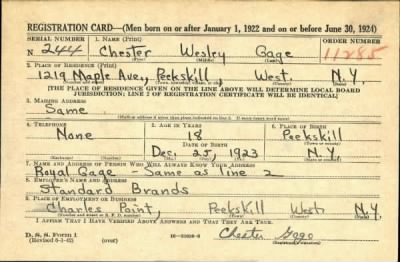 REGISTRATION CARD—(Men born on or after January 1, 1922 and on or before June 30, 1924)
SERIAL NUMBER 1. NAME (Print) ORDER NUMBER
N. 244 Chester Wesley Gage 11285
(First) (Middle) (Last)
2. PLACE OF RESIDENCE (Print)
1219 Maple Ave., Peekskill West. N.Y.
[THE PLACE OF RESIDENCE GIVEN ON THE LINE ABOVE WILL DETERMINE LOCAL BOARD
JURISDICTION; LINE 2 OF REGISTRATION CERTIFICATE WILL BE IDENTICAL]
3. MAILING ADDRESS
Same
4. TELEPHONE 5. AGE IN YEARS 6. PLACE OF BIRTH
None 18 Peekskill
DATE OF BIRTH
Dec. 25, 1923 N.Y.
7. NAME AND ADDRESS OF PERSON WHO WILL ALWAYS KNOW YOUR ADDRESS
Royal Gage - Same as line 2
8. EMPLOYER'S NAME AND ADDRESS
Standard Brands
9. PLACE OF EMPLOYMENT OR BUSINESS
Charles Point, Peekskill West. N.Y.
I AFFIRM THAT I HAVE VERIFIED ABOVE ANSWERS AND THAT THEY ARE TRUE.
D. S. S. Form 1
(Revised 6-1-42) (over) Chester Gage